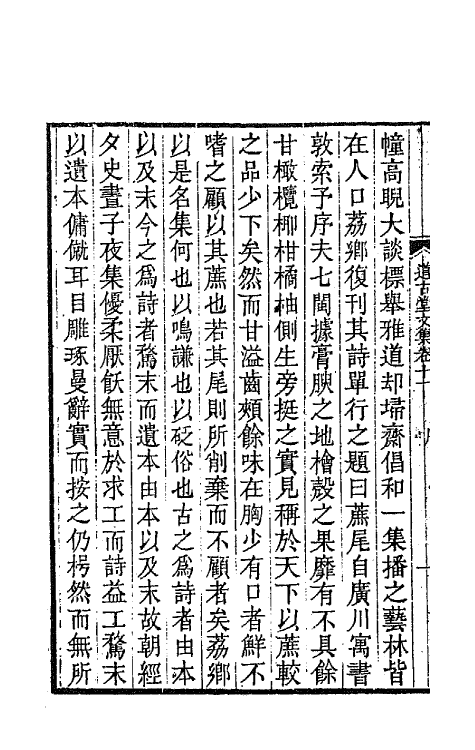 幢高睨大談標舉雅道却埽齋倡和一集播之藝林皆
在人口荔鄉復刊其詩單行之題曰蔗尾自廣川寓書
敦索予序夫七閩據膏腴之地檜殼之果靡有不具餘
甘橄欖柳柑橘柚側生旁挺之實見稱於天下以蔗較
之品少下矣然而甘溢齒頰餘味在胸少有口者鮮不
嗜之顧以其蔗也若其尾則所削棄而不顧者矣荔鄉
以是名集何也以鳴謙也以砭俗也古之爲詩者由本
以及末今之爲詩者騖末而遺本由本以及末故朝經
夕史晝子夜集優柔厭飫無意於求工而詩益工騖末
以遺本傭僦耳目雕琢曼辭實而按之仍枵然而無所
道古堂文集卷十一